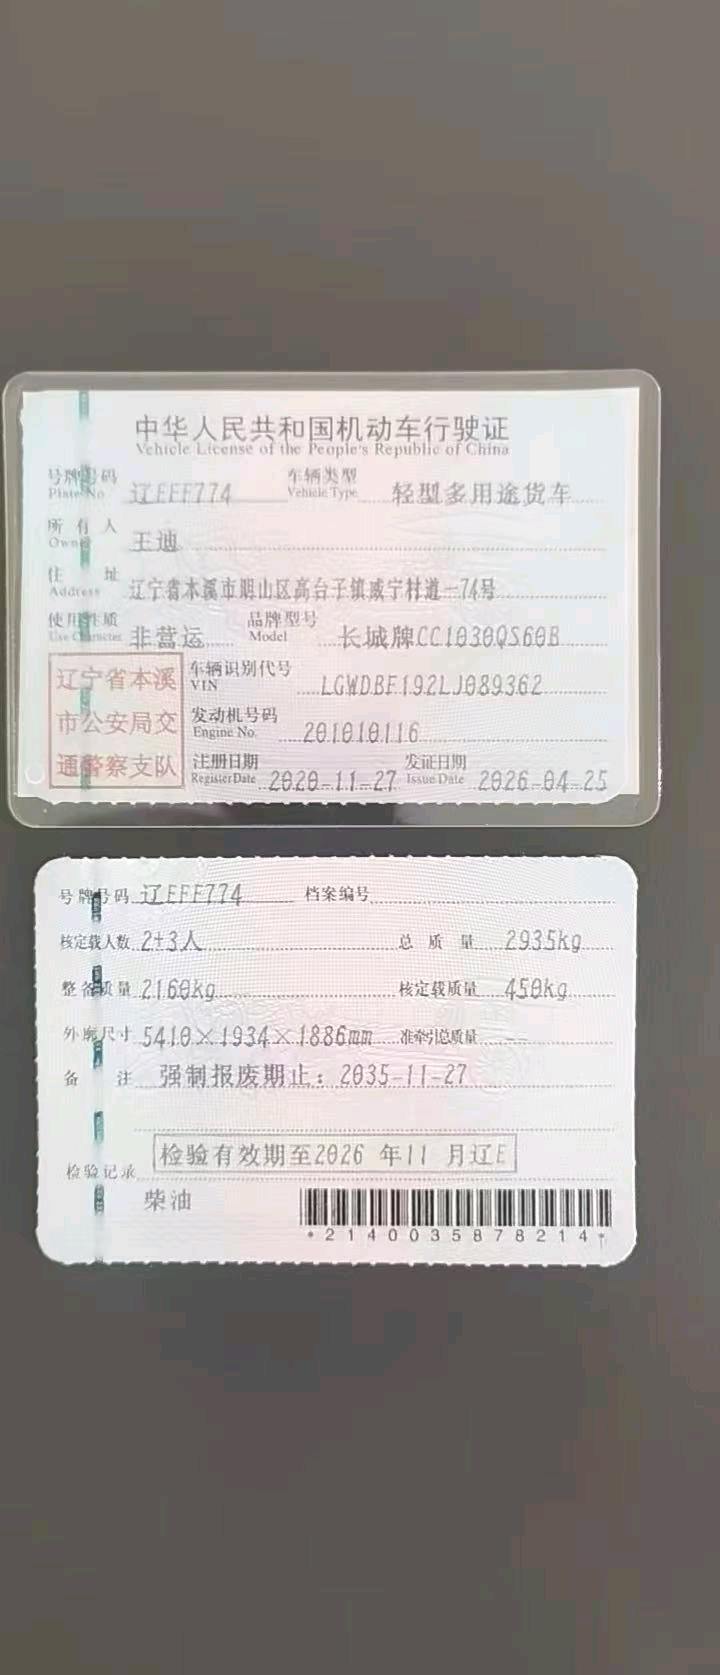 中华人民共和国机动车行驶证
Vehicle License of the People's Republic of China
号牌号码 Plate No. 辽EFF774 车辆类型 Vehicle Type 轻型多用途货车
所有人 Owner 王迪
住址 Address 辽宁省本溪市明山区高台子镇威宁村道一74号
使用性质 Use Character 非营运 品牌型号 Model 长城牌CC1030QS60B
辽宁省本溪市公安局交通警察支队
车辆识别代号 VIN LGWDBF192LJ089362
发动机号码 Engine No. 201010116
注册日期 Register Date 2020-11-27 发证日期 Issue Date 2026-04-25
号牌号码 辽EFF774 档案编号
核定载人数 2+3人 总质量 2935kg
整备质量 2160kg 核定载质量 450kg
外廓尺寸 5410×1934×1886mm 准牵引总质量 --
备注 强制报废期止：2035-11-27
检验记录 检验有效期至2026 年11 月辽E
柴油
*2140035878214*